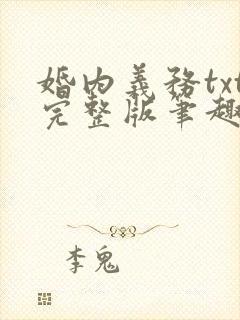 婚内義務txt
完整版筆趣
李鬼